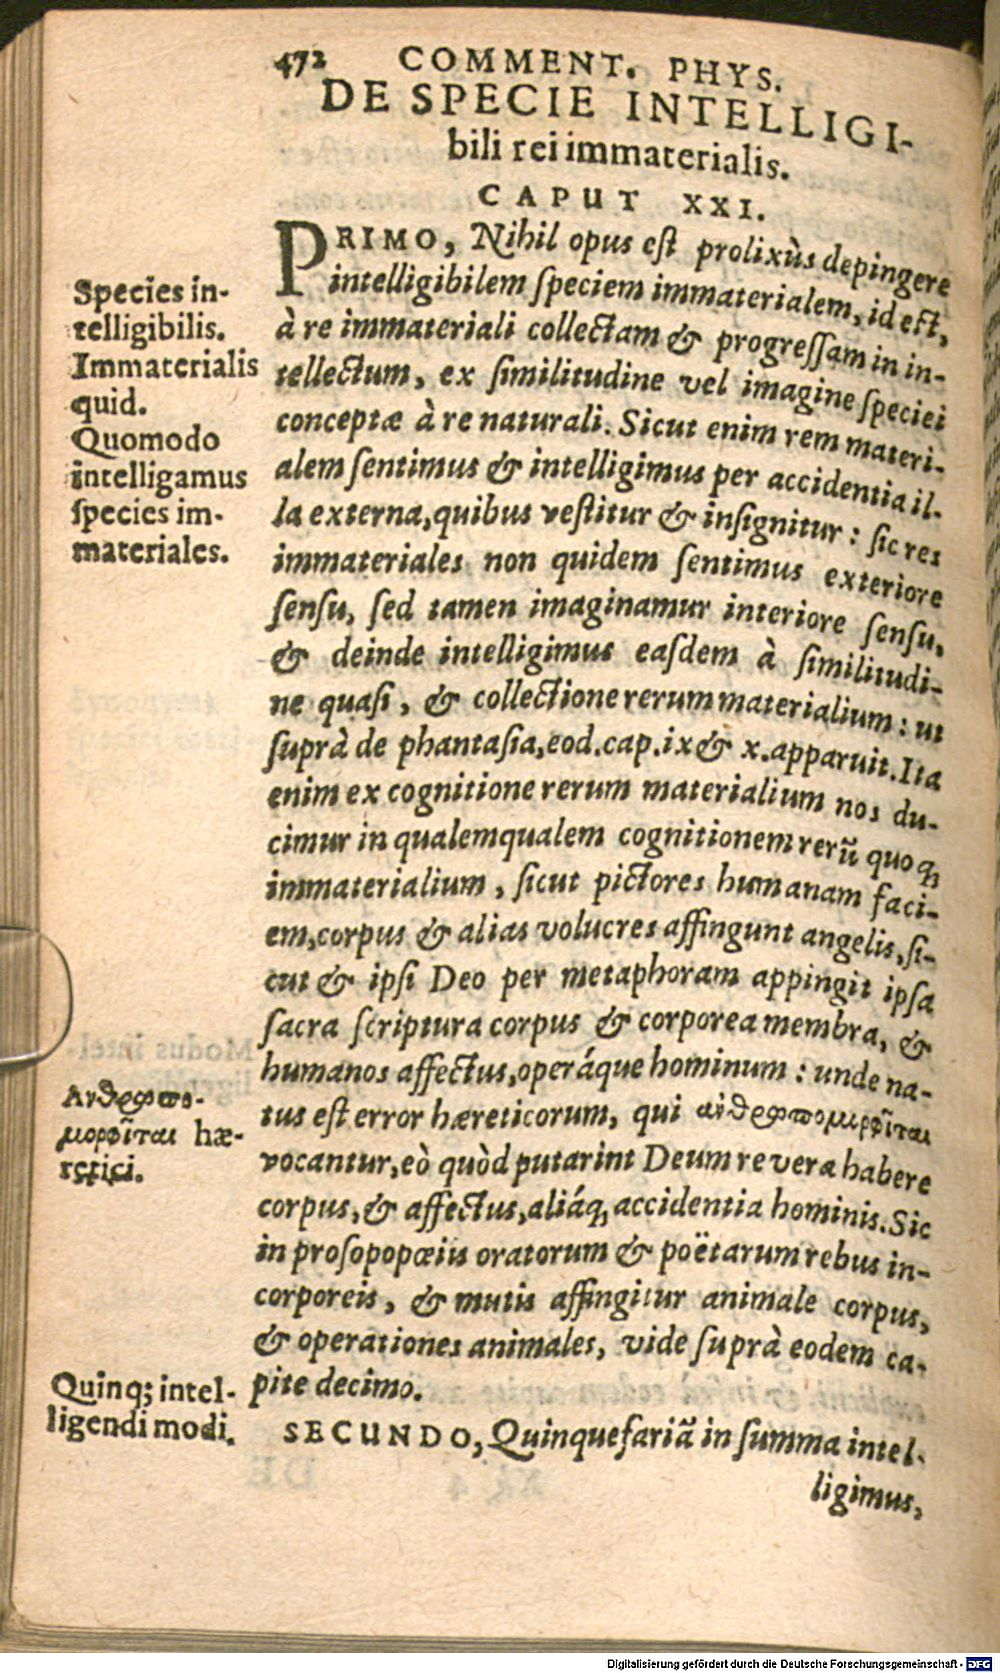 472 COMMENT. PHYS.
DE SPECIE INTELLIGI-
bili rei immaterialis.
CAPUT XXI.
PRIMO, Nihil opus eſt prolixùs depingere
intelligibilem ſpeciem immaterialem, id eſt,
à re immateriali collectam & progreſſam in in-
tellectum, ex ſimilitudine vel imagine ſpeciei
conceptæ à re naturali. Sicut enim rem materi-
alem ſentimus & intelligimus per accidentia il-
la externa, quibus veſtitur & inſignitur: ſic res
immateriales non quidem ſentimus exteriore
ſenſu, ſed tamen imaginamur interiore ſenſu,
& deinde intelligimus eaſdem à ſimilitudi-
ne quaſi, & collectione rerum materialium: ut
ſuprà de phantaſia, eod. cap. ix & x. apparuit. Ita
enim ex cognitione rerum materialium nos du-
cimur in qualemqualem cognitionem rerũ quoq;
immaterialium, ſicut pictores humanam faci-
em, corpus & alias volucres affingunt angelis, ſi-
cut & ipſi Deo per metaphoram appingit ipſa
ſacra ſcriptura corpus & corporea membra, &
humanos affectus, operáque hominum: unde na-
tus eſt error hæreticorum, qui ανθρωπομορφῖται
vocantur, eò quòd putarint Deum revera habere
corpus, & affectus, aliáq; accidentia hominis. Sic
in proſopopœiis oratorum & poëtarum rebus in-
corporeis, & mutis affingitur animale corpus,
& operationes animales, vide ſuprà eodem ca-
pite decimo.
SECUNDO, Quinquefariã in ſumma intel-
ligimus,
Species in-
telligibilis.
Immaterialis
quid.
Quomodo
intelligamus
ſpecies im-
materiales.
Ανθρωπο-
μορφῖται hæ-
retici.
Quinq; intel-
ligendi modi.
Digitalisierung gefördert durch die Deutsche Forschungsgemeinschaft - DFG